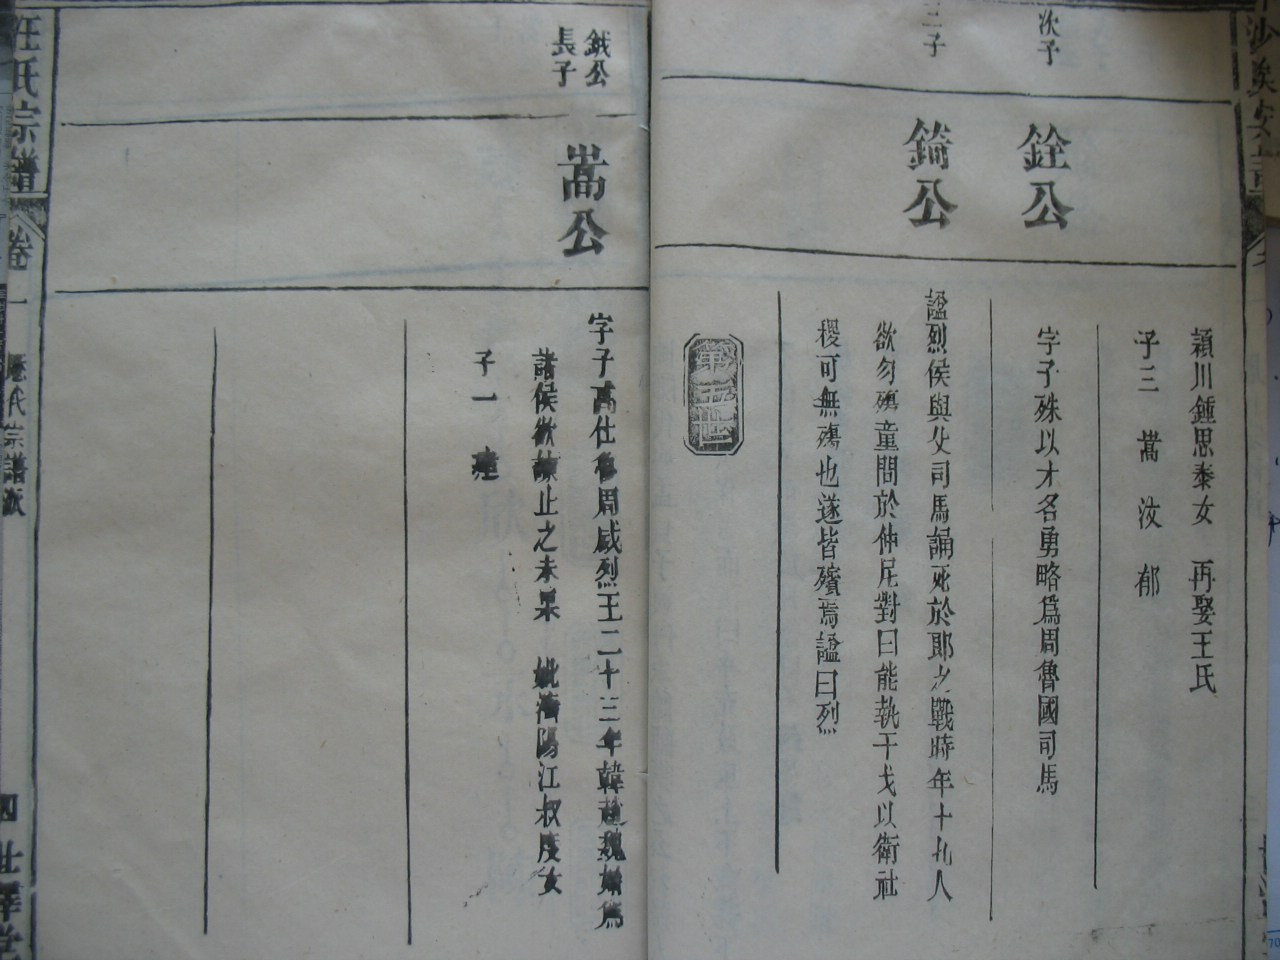 次子
三子
銓公
錡公
潁川鍾思泰女　再娶王氏
子三　嵩　汶　郁
字子殊以才名勇略爲周魯國司馬
諡烈侯與父司馬誦死於郎之戰時年十九人
欲勿殤童問於仲尼對曰能執干戈以衛社
稷可無殤也遂皆殯焉諡曰烈
第五世
鉞公
長子
嵩公
字子高仕魯周威烈王二十三年韓趙魏始爲
諸侯欲諫止之未果　妣濟陽江叔度女
子一
汪氏宗譜
卷一
歷代宗譜派
四
世澤堂